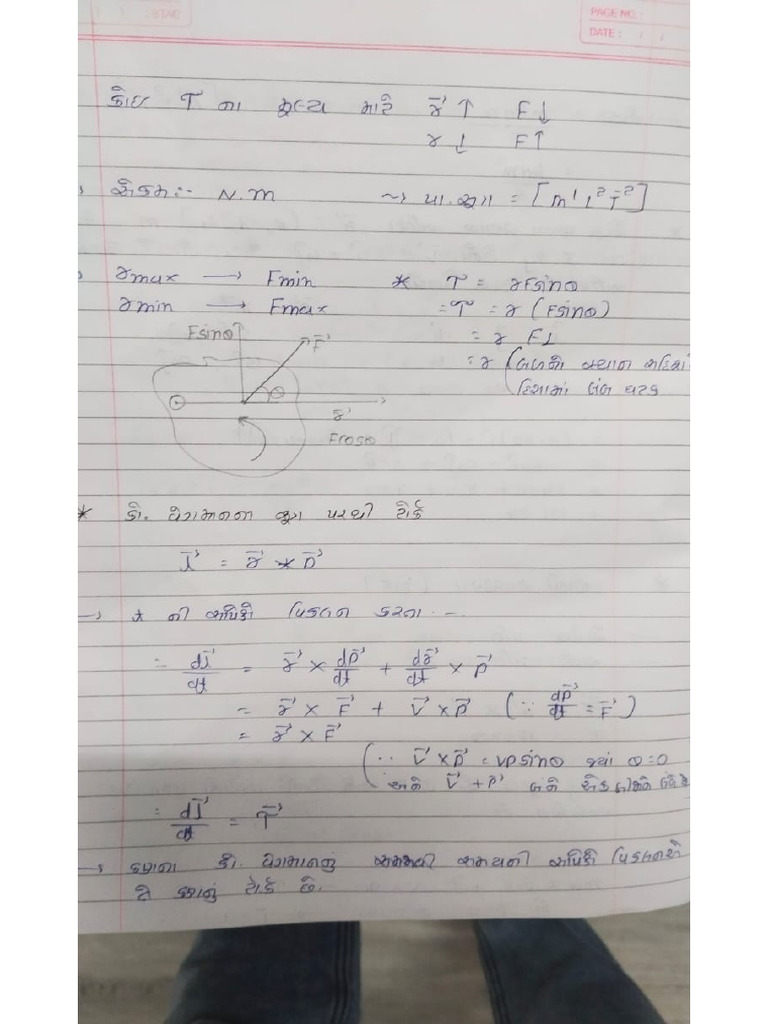 PAGE NO.:
DATE: / /
કોઇ τ ના મુલ્ય માટે r⃗ ↑ F↓
r ↓ F↑
એકમ:- N.m ~> પા.સુત્ર = [M¹ L² T⁻²]
rmax → Fmin * τ = rFsinθ
rmin → Fmax = τ = r (Fsinθ)
= r F⊥
Fsinθ F⃗ = r (
દિશામાં લંબ ઘટક
θ r⃗
Fcosθ
* કો. વેગમાનના સુત્ર પરથી ટોર્ક
l⃗ = r⃗ × p⃗
→ t ની સાપેક્ષે વિકલન કરતા -
∴ dl⃗/dt = r⃗ × dp⃗/dt + dr⃗/dt × p⃗
= r⃗ × F⃗ + v⃗ × p⃗ (∵ dp⃗/dt = F⃗)
= r⃗ × F⃗
(∵ v⃗ × p⃗ = vp sinθ જ્યાં θ=0
v⃗ + p⃗
∴ dl⃗/dt = τ⃗
→ કણના કો. વેગમાનનું સમયની સાપેક્ષે વિકલન
એ કણનું ટોર્ક છે.